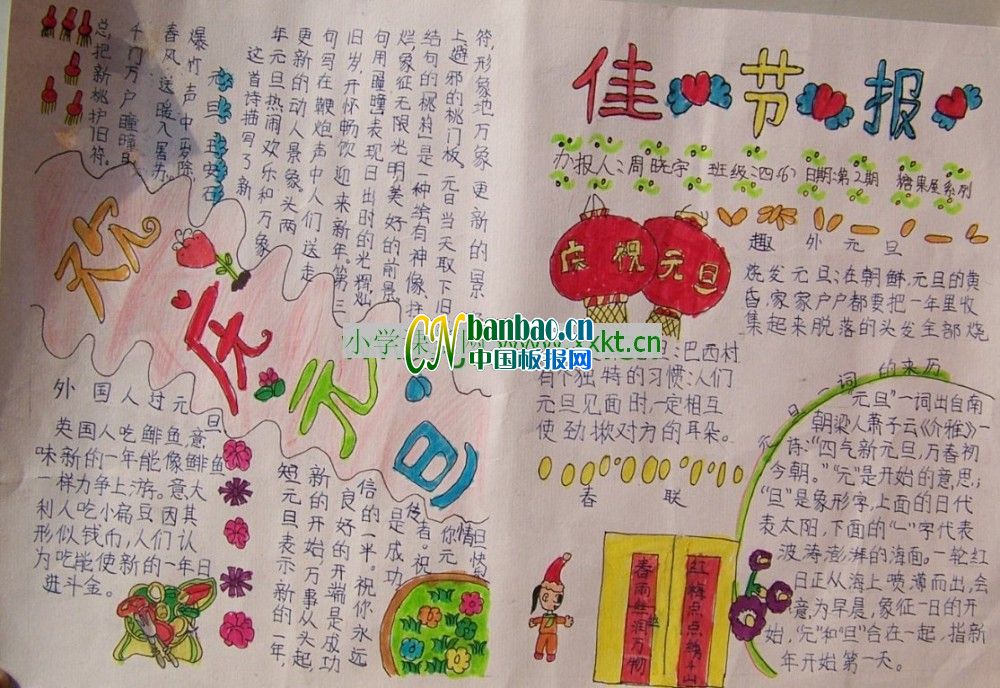 佳节报
办报人:周晓宇 班级:四(6) 日期:第2期 糖果屋系列
庆祝元旦
趣外元旦
烧发元旦:在朝鲜,元旦的黄
昏,家家户户都要把一年里收
集起来脱落的头发全部烧
:巴西村
有个独特的习惯:人们
元旦见面时,一定相互
使劲揪对方的耳朵。
春联
春雨丝丝润万物
红梅点点绣千山
词的来历
元旦"一词出自南
朝梁人萧子云《介雅》一
诗:"四气新元旦,万春初
今朝。"元"是开始的意思;
"旦"是象形字,上面的日代
表太阳,下面的"一"字代表
波涛澎湃的海面。一轮红
日正从海上喷薄而出,会
意为早晨,象征一日的开
始,"元"和"旦"合在一起,指新
年开始第一天。
元旦 王安石
爆竹声中岁除
春风送暖入屠苏
千门万户瞳瞳日
总把新桃护旧符。
这首诗描写了新
年元旦热闹欢乐和万象
更新的动人景象,头两
句写在鞭炮声中人们送走
旧岁,开怀畅饮迎来新年。第三
句用"瞳瞳"表现日出时的光辉灿
烂,象征无限光明美好的前景
结句的"桃符"是一种绘有神像、挂
上避邪的桃门板,元日当天取下旧
符,形象地万象更新的景
祝庆元旦
外国人过元旦
英国人吃鲱鱼,意
味新的一年能像鲱鱼
一样力争上游。意大
利人吃小扁豆,因其
形似钱币,人们认
为吃能使新的一年日
进斗金。
短元旦表示新的一年,
新的开始万事从头起,
良好的开端是成功
信的一半。祝你永远
是成功
使者。祝
你元
旦快
小学课 www.xxkt.cn
CN banbao.cn
中国板报网